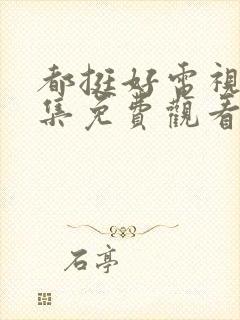 都挺好電視
集免費觀看
石亭